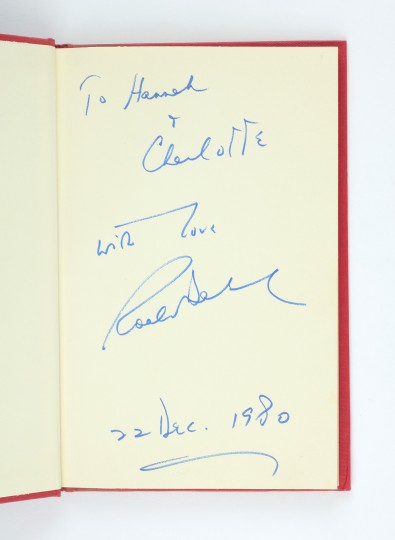 To Hannah
+
Charlotte
with love
Roald Dahl
22 Dec. 1980